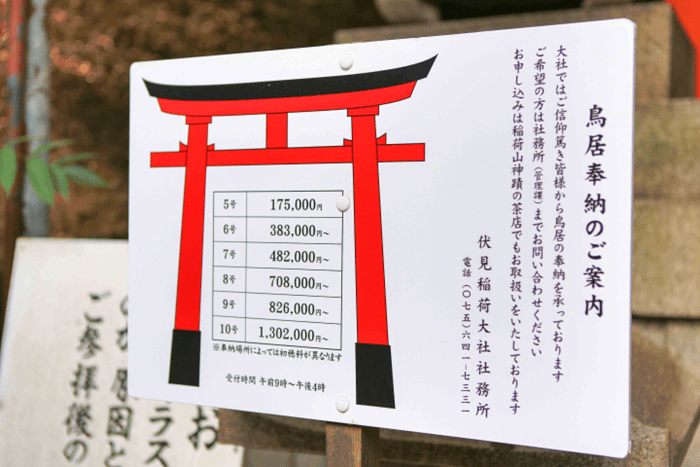 鳥居奉納のご案内
大社ではご信仰篤き皆様から鳥居の奉納を承っております
ご希望の方は社務所(管理課)までお問い合わせください
お申し込みは稲荷山神蹟の茶店でもお取扱いをいたしております
伏見稲荷大社社務所
電話(〇七五)六四一-七三三一
5号 175,000円
6号 383,000円~
7号 482,000円~
8号 708,000円~
9号 826,000円~
10号 1,302,000円~
※奉納場所によっては初穂料が異なります
受付時間 午前9時~午後4時
お
ラス
ご参拝後の